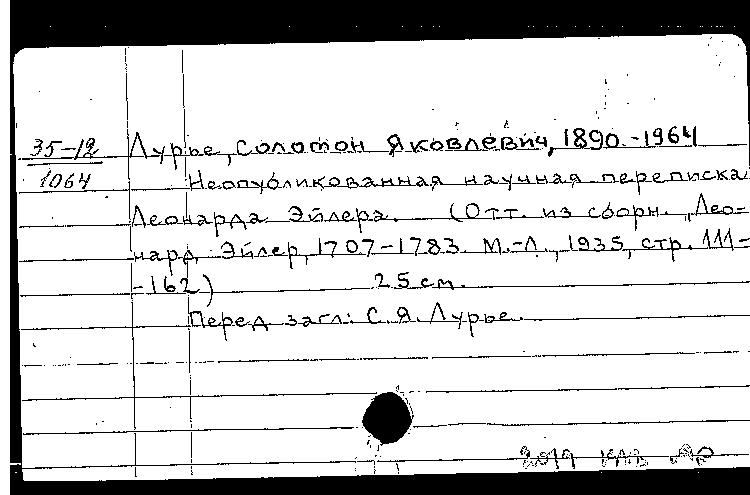 35-12 Лурье, Соломон Яковлевич, 1890.-1964
1064 Неопубликованная научная переписка
Леонарда Эйлера. (Отт. из сборн. „Лео-
нард Эйлер, 1707-1783. М.-Л., 1935, стр. 111-
-162) 25 см.
Перед загл.: С.Я. Лурье.